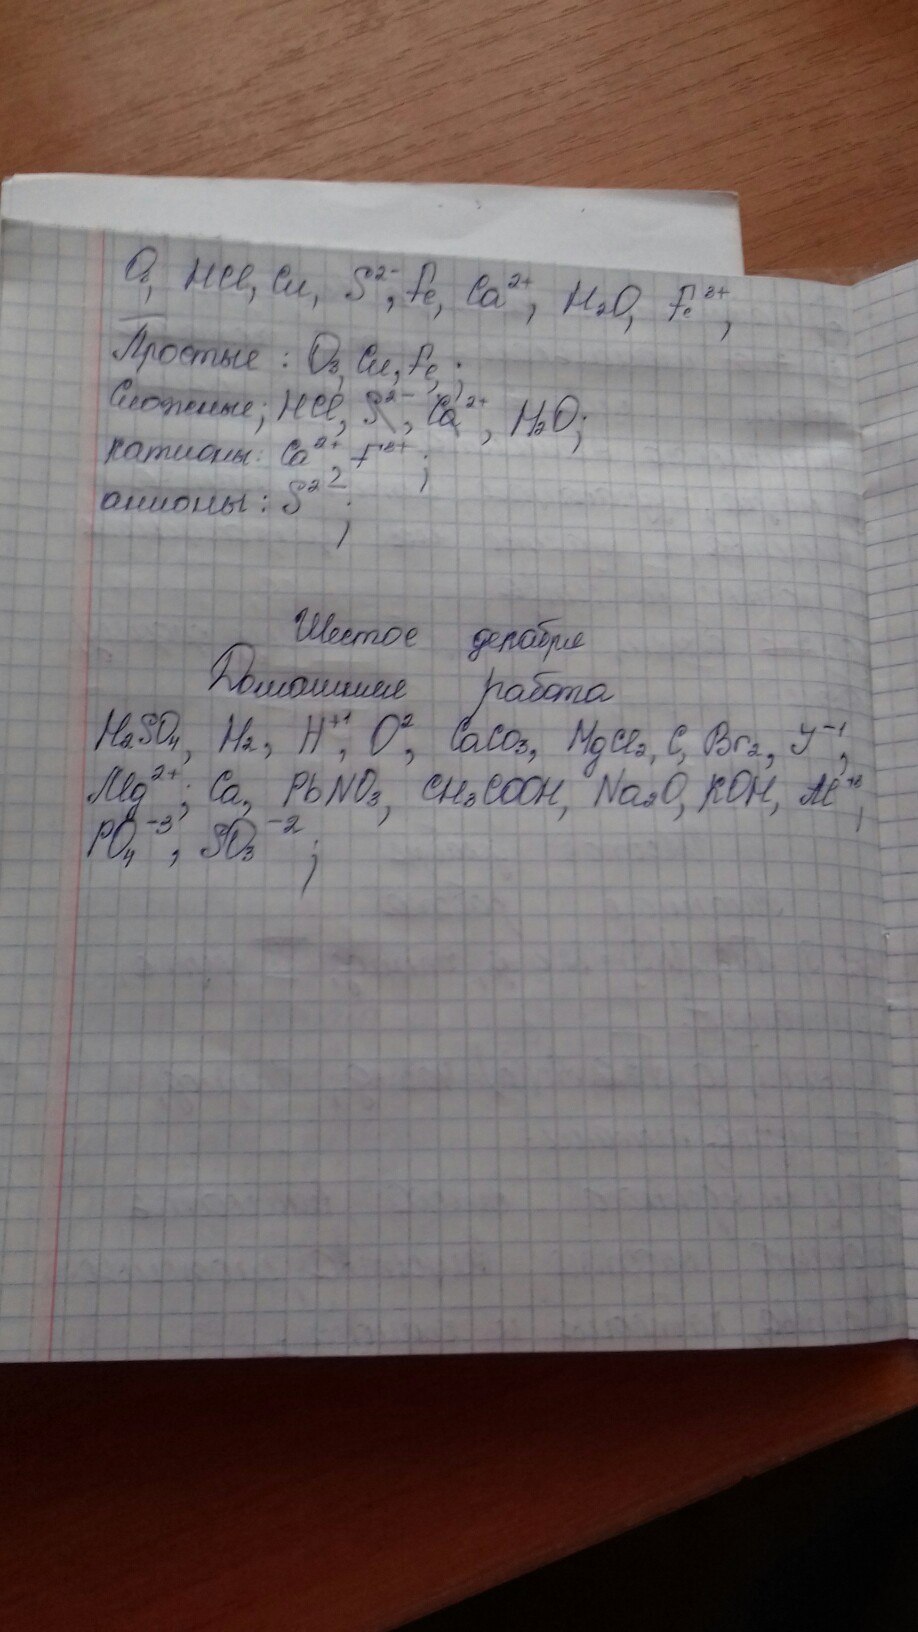 O₃, HCl, Cu, S²⁻, Fe, Ca²⁺, H₂O, Fe³⁺,
Простые: O₃, Cu, Fe,;
Сложные; HCl, S²⁻, Ca²⁺, H₂O;
катионы: Ca²⁺, F³⁺;
анионы: S²⁻;
Шестое декабря
Домашнее работа
H₂SO₄, H₂, H⁺¹, O², CaCO₃, MgCl₂, C, Br₂, J⁻¹,
Mg²⁺; Ca, PbNO₃, CH₃COOH, Na₂O, KOH,
PO₄⁻³, SO₃⁻²;